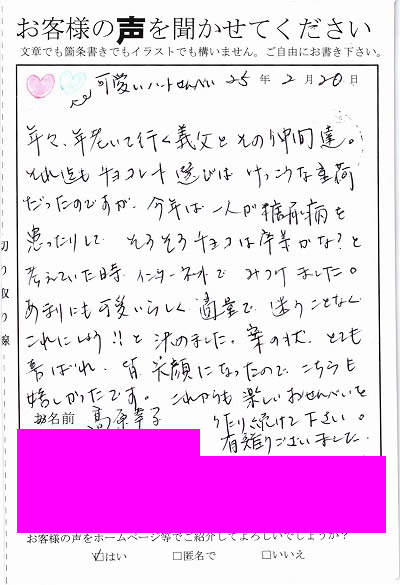 お客様の声を聞かせてください
文章でも箇条書きでもイラストでも構いません。ご自由にお書き下さい。
可愛いハートせんべい 25年2月20日
年々、年老いて行く義父とその仲間達。
それ迄も チョコレート選びは けっこうな重荷
だったのですが、今年は一人が糖尿病を
患ったりして そろそろチョコは卒業かな?と
考えていた時、インターネットで みつけました。
あまりにも可愛いらしく 適量で、迷うことなく
これにしよう!!と決めました。案の状、とても
喜ばれ、皆 笑顔になったので、こちらも
嬉しかったです。これからも 楽しいおせんべいを
お名前 高原幸子 作り続けて下さい。
有難うございました。
お客様の声をホームページ等でご紹介してよろしいでしょうか?
☑はい □匿名で □いいえ
切り取り線